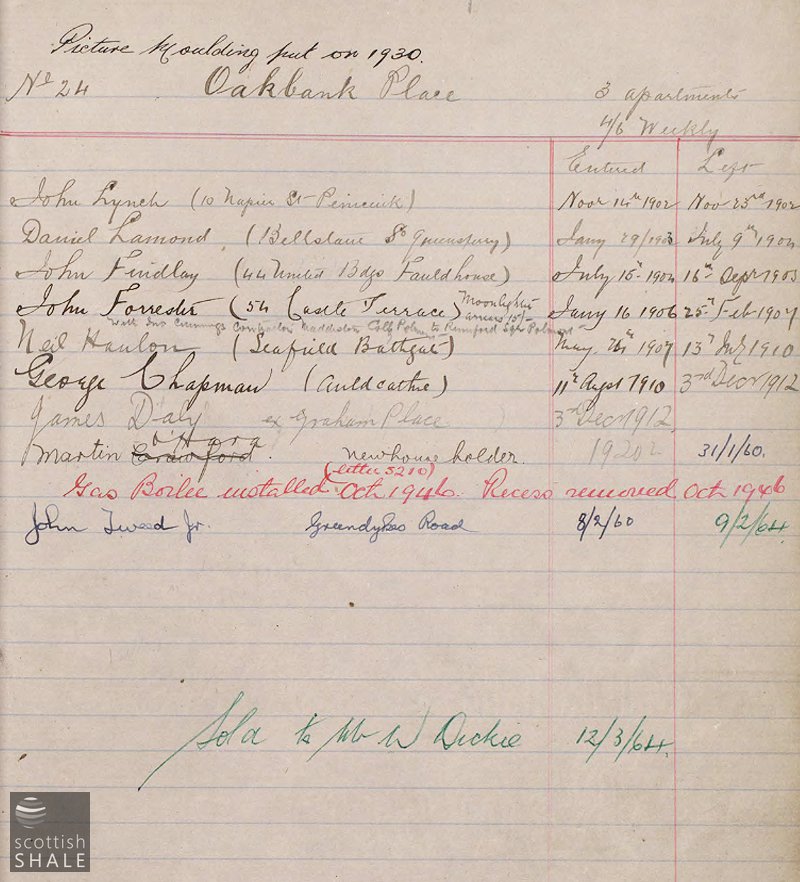 Picture Moulding put on 1930.
No 24 Oakbank Place 3 apartments
4/6 Weekly
Entered Left
John Lynch (10 Napier St Penicuik) Novr 14th 1902 Nov 23rd 1902
Daniel Lamond (Bellstane Sth Queensferry) Jany 29/1903 July 9th 1904
John Findlay (44 United Bdgs Fauldhouse) July 15th 1904 16th Sepr 1905
John Forrester (54 Castle Terrace) Moonlighter Jany 16 1906 25th Feb 1907
arrears 15/-
with Jno Cummings Contractor Maddiston to Rumford Sqr Polmont
Neil Hanlon (Seafield Bathgate) May 1907 13th July 1910
George Chapman (Auldcathie) 11th Augst 1910 3rd Decr 1912
James Daly ex Graham Place 3rd Decr 1912
O'Hara
Martin Crawford. new householder. 1920 31/1/60.
(letter 5210)
Gas Boiler installed Oct 1946. Recess removed Oct 1946
John Tweed Jr. Greendykes Road 8/2/60 9/2/64.
Sold to Mr W Dickie 12/3/64.
scottish
SHALE